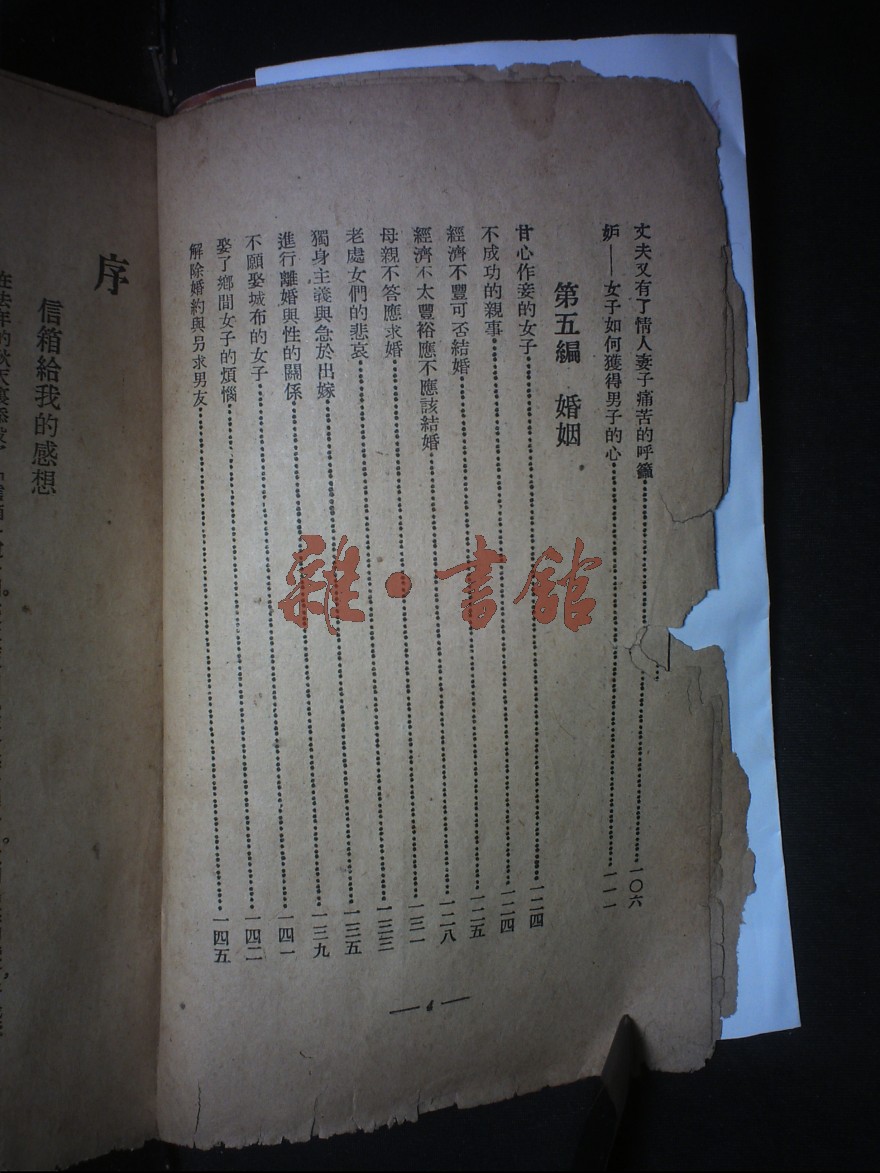 丈夫又有了情人妻子痛苦的呼籲……一〇六
妒——女子如何獲得男子的心……一一一
第五編　婚姻
甘心作妾的女子……一二四
不成功的親事……一二四
經濟不豐可否結婚……一二五
經濟不太豐裕應不應該結婚……一二八
母親不答應求婚……一三一
老處女們的悲哀……一三三
獨身主義與急於出嫁……一三五
進行離婚與性的關係……一三九
不願娶城布的女子……一四一
娶了鄉間女子的煩惱……一四二
解除婚約與另求男友……一四五
雜·書館
序
信箱給我的感想
在去年的秋天裏